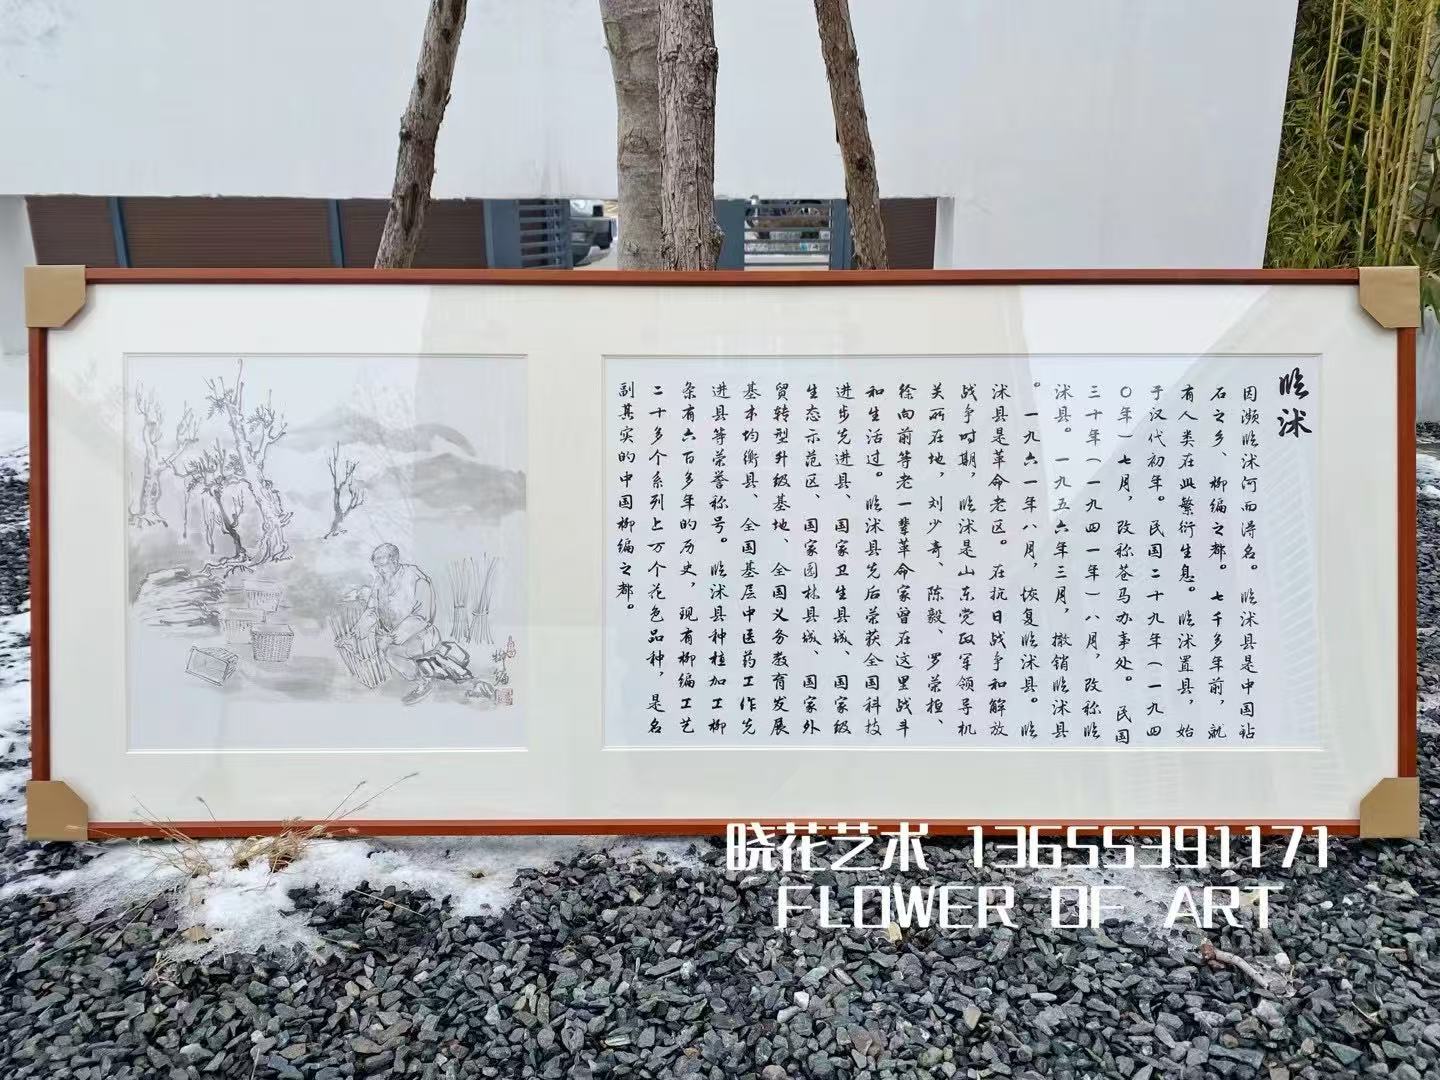 临沭
因濒临沭河而得名。临沭县是中国钻
石之乡、柳编之都。七千多年前，就
有人类在此繁衍生息。临沭置县，始
于汉代初年。民国二十九年（一九四
〇年）七月，改称苍马办事处。民国
三十年（一九四一年）八月，改称临
沭县。一九五六年三月，撤销临沭县
。一九六一年八月，恢复临沭县。临
沭县是革命老区。在抗日战争和解放
战争时期，临沭是山东党政军领导机
关所在地，刘少奇、陈毅、罗荣桓、
徐向前等老一辈革命家曾在这里战斗
和生活过。临沭县先后荣获全国科技
进步先进县、国家卫生县城、国家级
生态示范区、国家园林县城、国家外
贸转型升级基地、全国义务教育发展
基本均衡县、全国基层中医药工作先
进县等荣誉称号。临沭县种植加工柳
条有六百多年的历史，现有柳编工艺
二十多个系列上万个花色品种，是名
副其实的中国柳编之都。
柳编
晓花艺术 13655391171
FLOWER OF ART